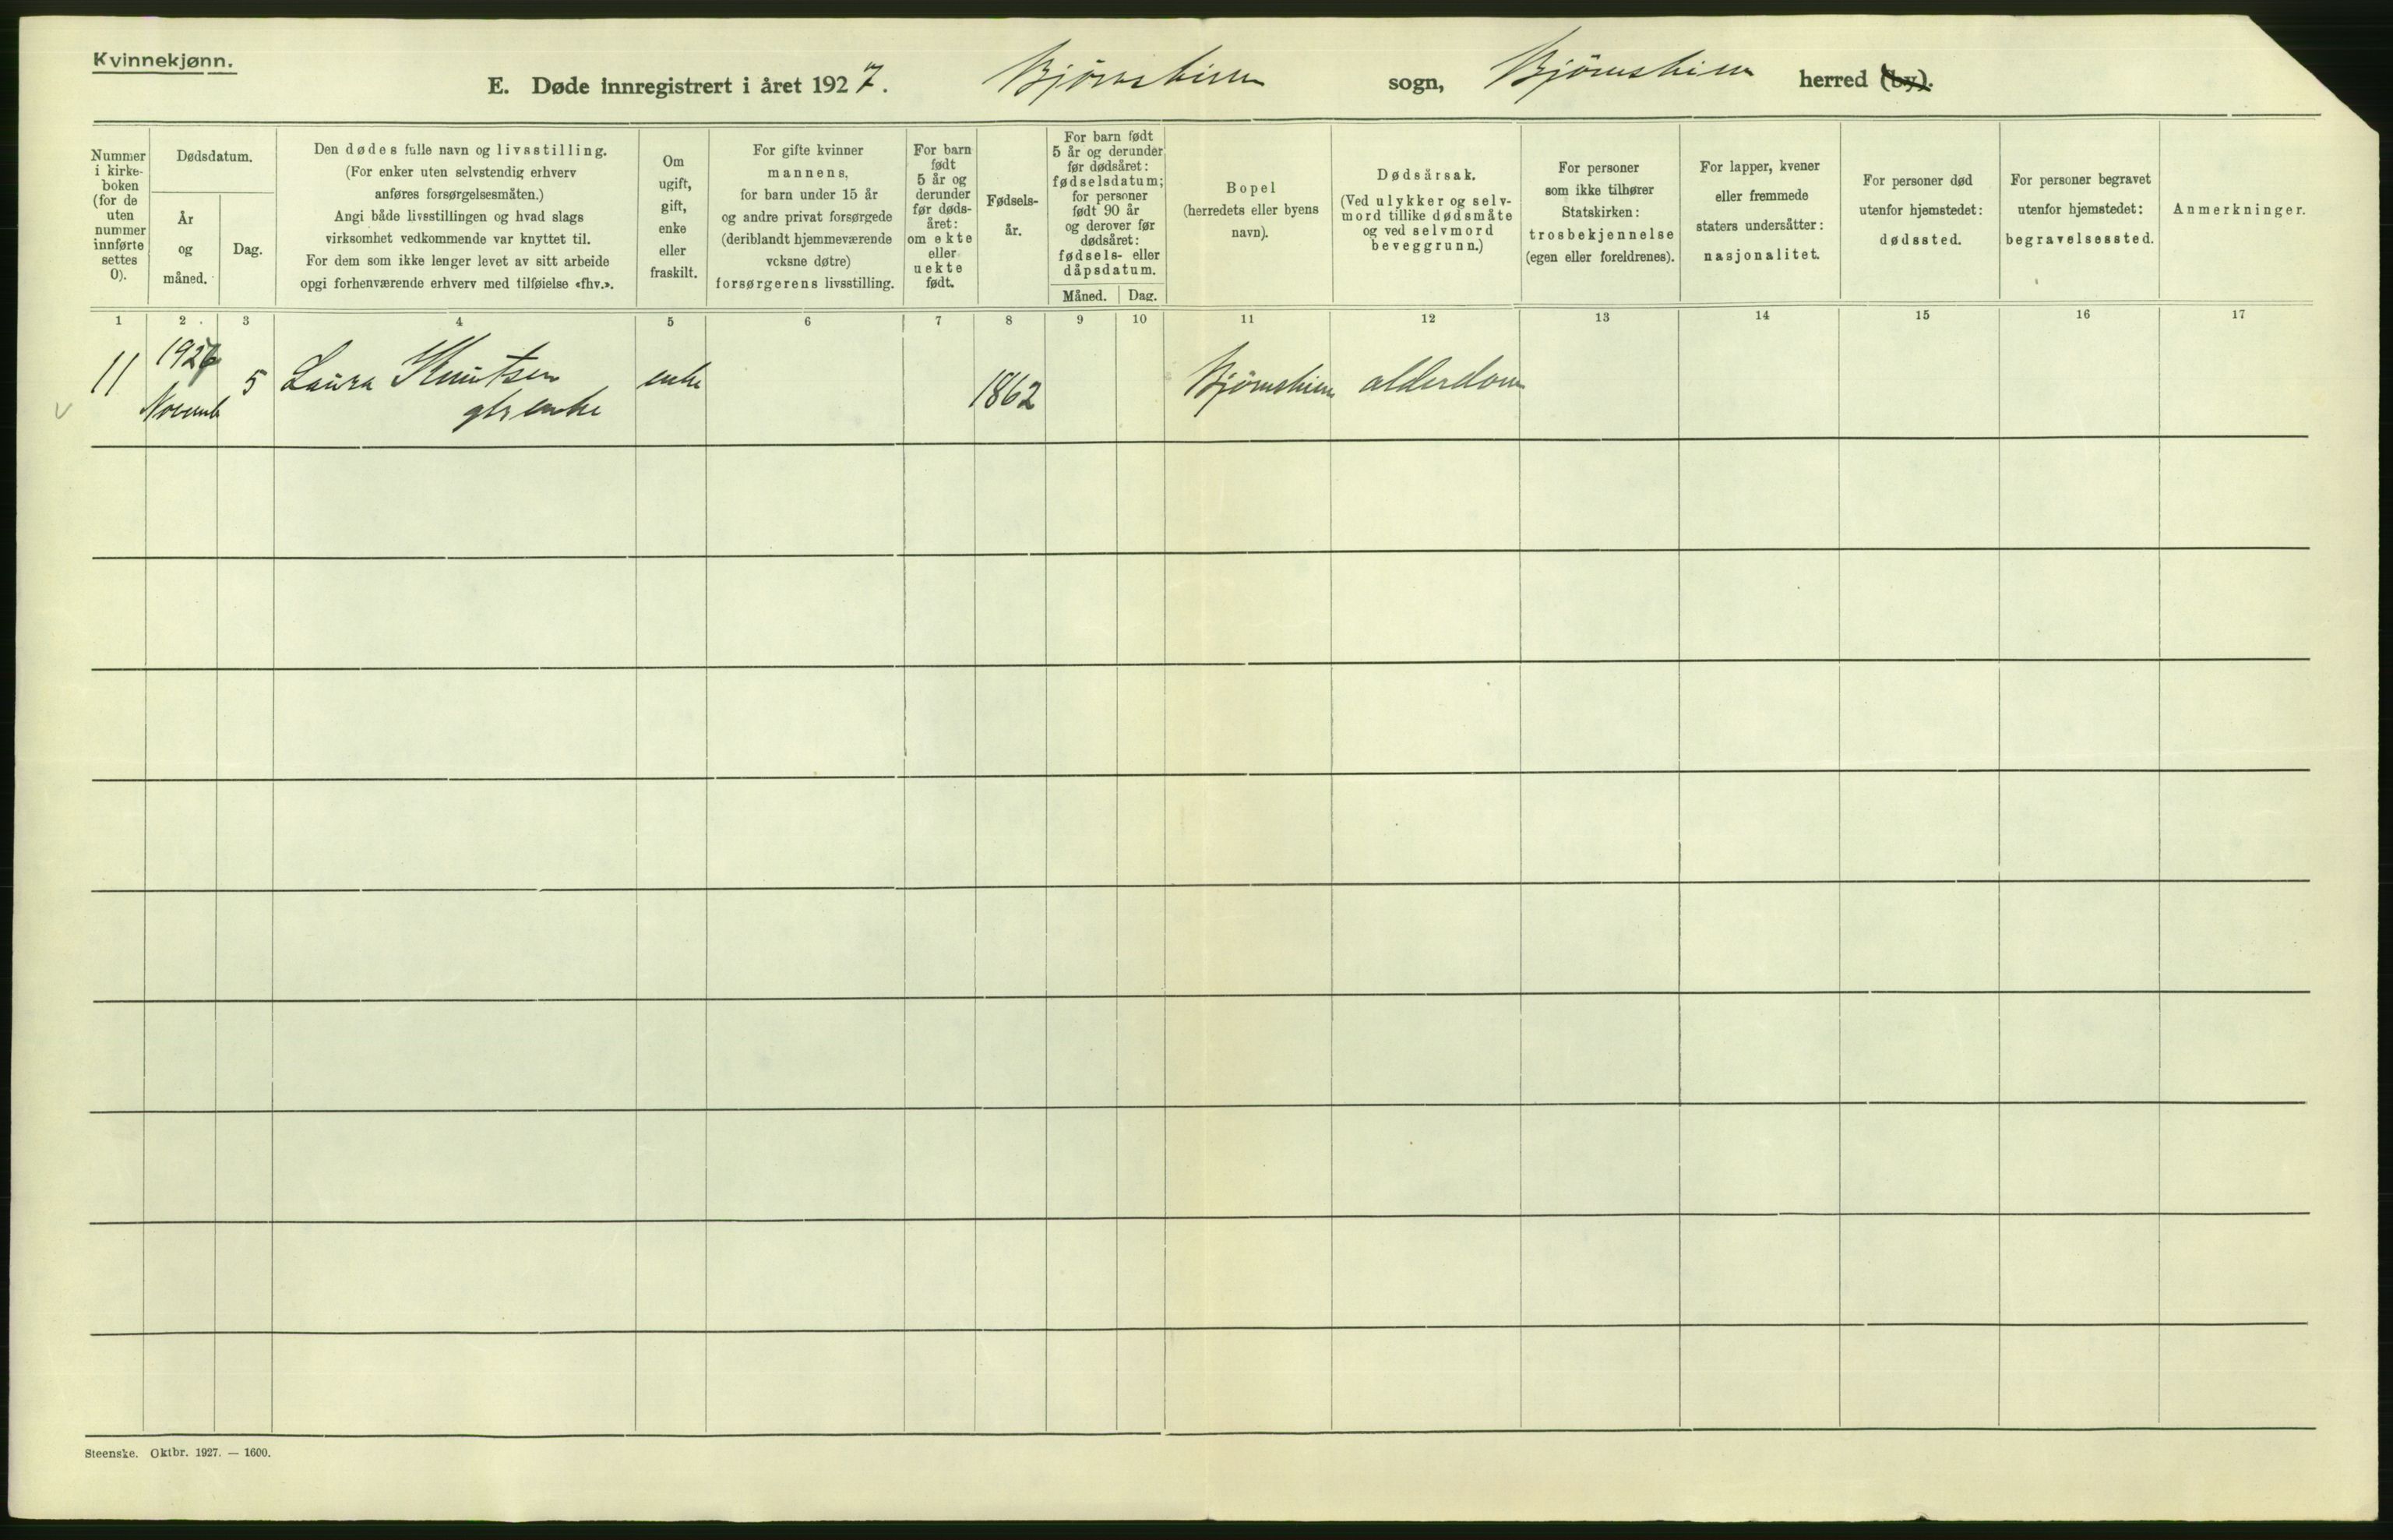 Kvinnekjønn.
E. Døde innregistrert i året 1927. Bjørnskinn sogn, Bjørnskinn herred (by).
Nummer
i kirke-
boken
(for de
uten
nummer
innførte
settes
0).
Dødsdatum.
År
og
måned.
Dag.
Den dødes fulle navn og livsstilling.
(For enker uten selvstendig erhverv
anføres forsørgelsesmåten.)
Angi både livsstillingen og hvad slags
virksomhet vedkommende var knyttet til.
For dem som ikke lenger levet av sitt arbeide
opgi forhenværende erhverv med tilføielse «fhv.».
Om
ugift,
gift,
enke
eller
fraskilt.
For gifte kvinner
mannens,
for barn under 15 år
og andre privat forsørgede
(deriblandt hjemmeværende
voksne døtre)
forsørgerens livsstilling.
For barn
født
5 år og
derunder
før døds-
året:
om ekte
eller
uekte
født.
Fødsels-
år.
For barn født
5 år og derunder
før dødsåret:
fødselsdatum;
for personer
født 90 år
og derover før
dødsåret:
fødsels- eller
dåpsdatum.
Måned. Dag.
Bopel
(herredets eller byens
navn).
Dødsårsak.
(Ved ulykker og selv-
mord tillike dødsmåte
og ved selvmord
beveggrunn.)
For personer
som ikke tilhører
Statskirken:
trosbekjennelse
(egen eller foreldrenes).
For lapper, kvener
eller fremmede
staters undersåtter:
nasjonalitet.
For personer død
utenfor hjemstedet:
dødssted.
For personer begravet
utenfor hjemstedet:
begravelsessted.
Anmerkninger.
1 2 3 4 5 6 7 8 9 10 11 12 13 14 15 16 17
11 1927 5 Laura Knutsen enke 1862 Bjørnskinn alderdom
Novemb enke
Steenske. Oktbr. 1927. — 1600.